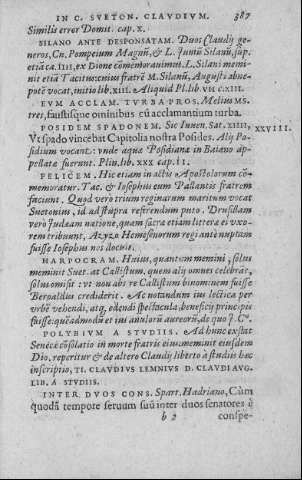 IN C. SVETON. CLAVDIVM. 387
Similis error Domit. cap. x.
SILANO ANTE DESPONSATAM. Duos Claudij ge-
neros, Cn. Pompeium Magnũ, & L. Junĩu Silanũ, sup.
etiã ca. IIII, ex Dione cõmemorauimus. L. Silani memi-
nit etiã Tacitus: cuius fratrẽ M. Silanũ, Augusti abne-
potẽ vocat, initio lib. XIII. Aliquid Pl. lib. VII c. XIII.
EVM ACCLAM. TVRBA PROS. Melius MS.
tres, faustisque ominibus cũ acclamantium turba.
POSIDEM SPADONEM. Sic Iuuen. Sat. XIIII, XXVIII.
Vt spado vincebat Capitolia nostra Posides. Alij Po-
sidium vocant: vnde aquæ Posidianæ in Baiano ap-
pellatæ fuerunt. Plin. lib. XXX cap. II.
FELICEM. Hic etiam in actis Apostolorum cõ-
memoratur. Tac. & Iosephus eum Pallantis fratrem
faciunt. Quod verò trium reginarum maritum vocat
Suetonius, id ad stupra referendum puto. Drusillam
verò Judæam natione, quam sacra etiam litteræ ei vxo-
rem tribuunt, Azyzo Homesenorum regi antè nuptam
fuisse Iosephus nos docuit.
HARPOCRAM. Huius, quantum memini, solus
meminit Suet. at Callistum, quem alij omnes celebrãt,
solus omisit: vt non abs re Callistum binominem fuisse
Beroaldus crediderit. Ac notandum ius lectica per
vrbẽ vehendi, atq; edendi spectacula, beneficij principis
fuisse: quẽadmodũ et ius anulorũ aureorũ, de quo P. Cº.
POLYBIVM A STVDIIS. Ad hunc exstat
Senecæ cõsolatio in morte fratris eius: meminit eiusdem
Dio. reperitur & de altero Claudij liberto à studiis hæc
inscriptio, TI. CLAVDIVS LEMNIVS D. CLAVDI AVG.
LIB. A STVDIIS.
INTER DVOS CONS. Spart. Hadriano, Cùm
quodã tempore seruum suũ inter duos senatores è
b 2 conspe-